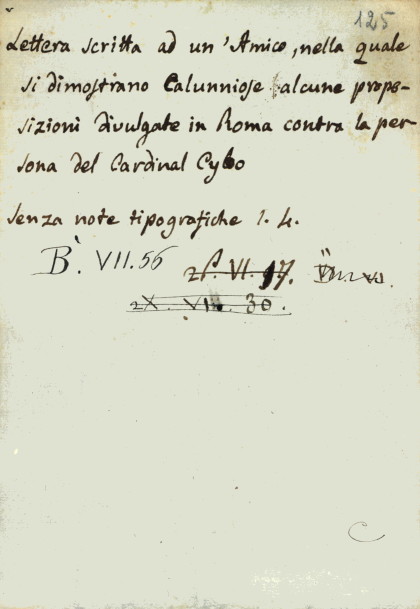 125
Lettera scritta ad un'Amico, nella quale
si dimostrano Calunniose alcune propo-
sizioni divulgate in Roma contra la per-
sona del Cardinal Cybo
senza note tipografiche 1. 4.
B. VII. 56 VI. 97.
VIII. 30.
C